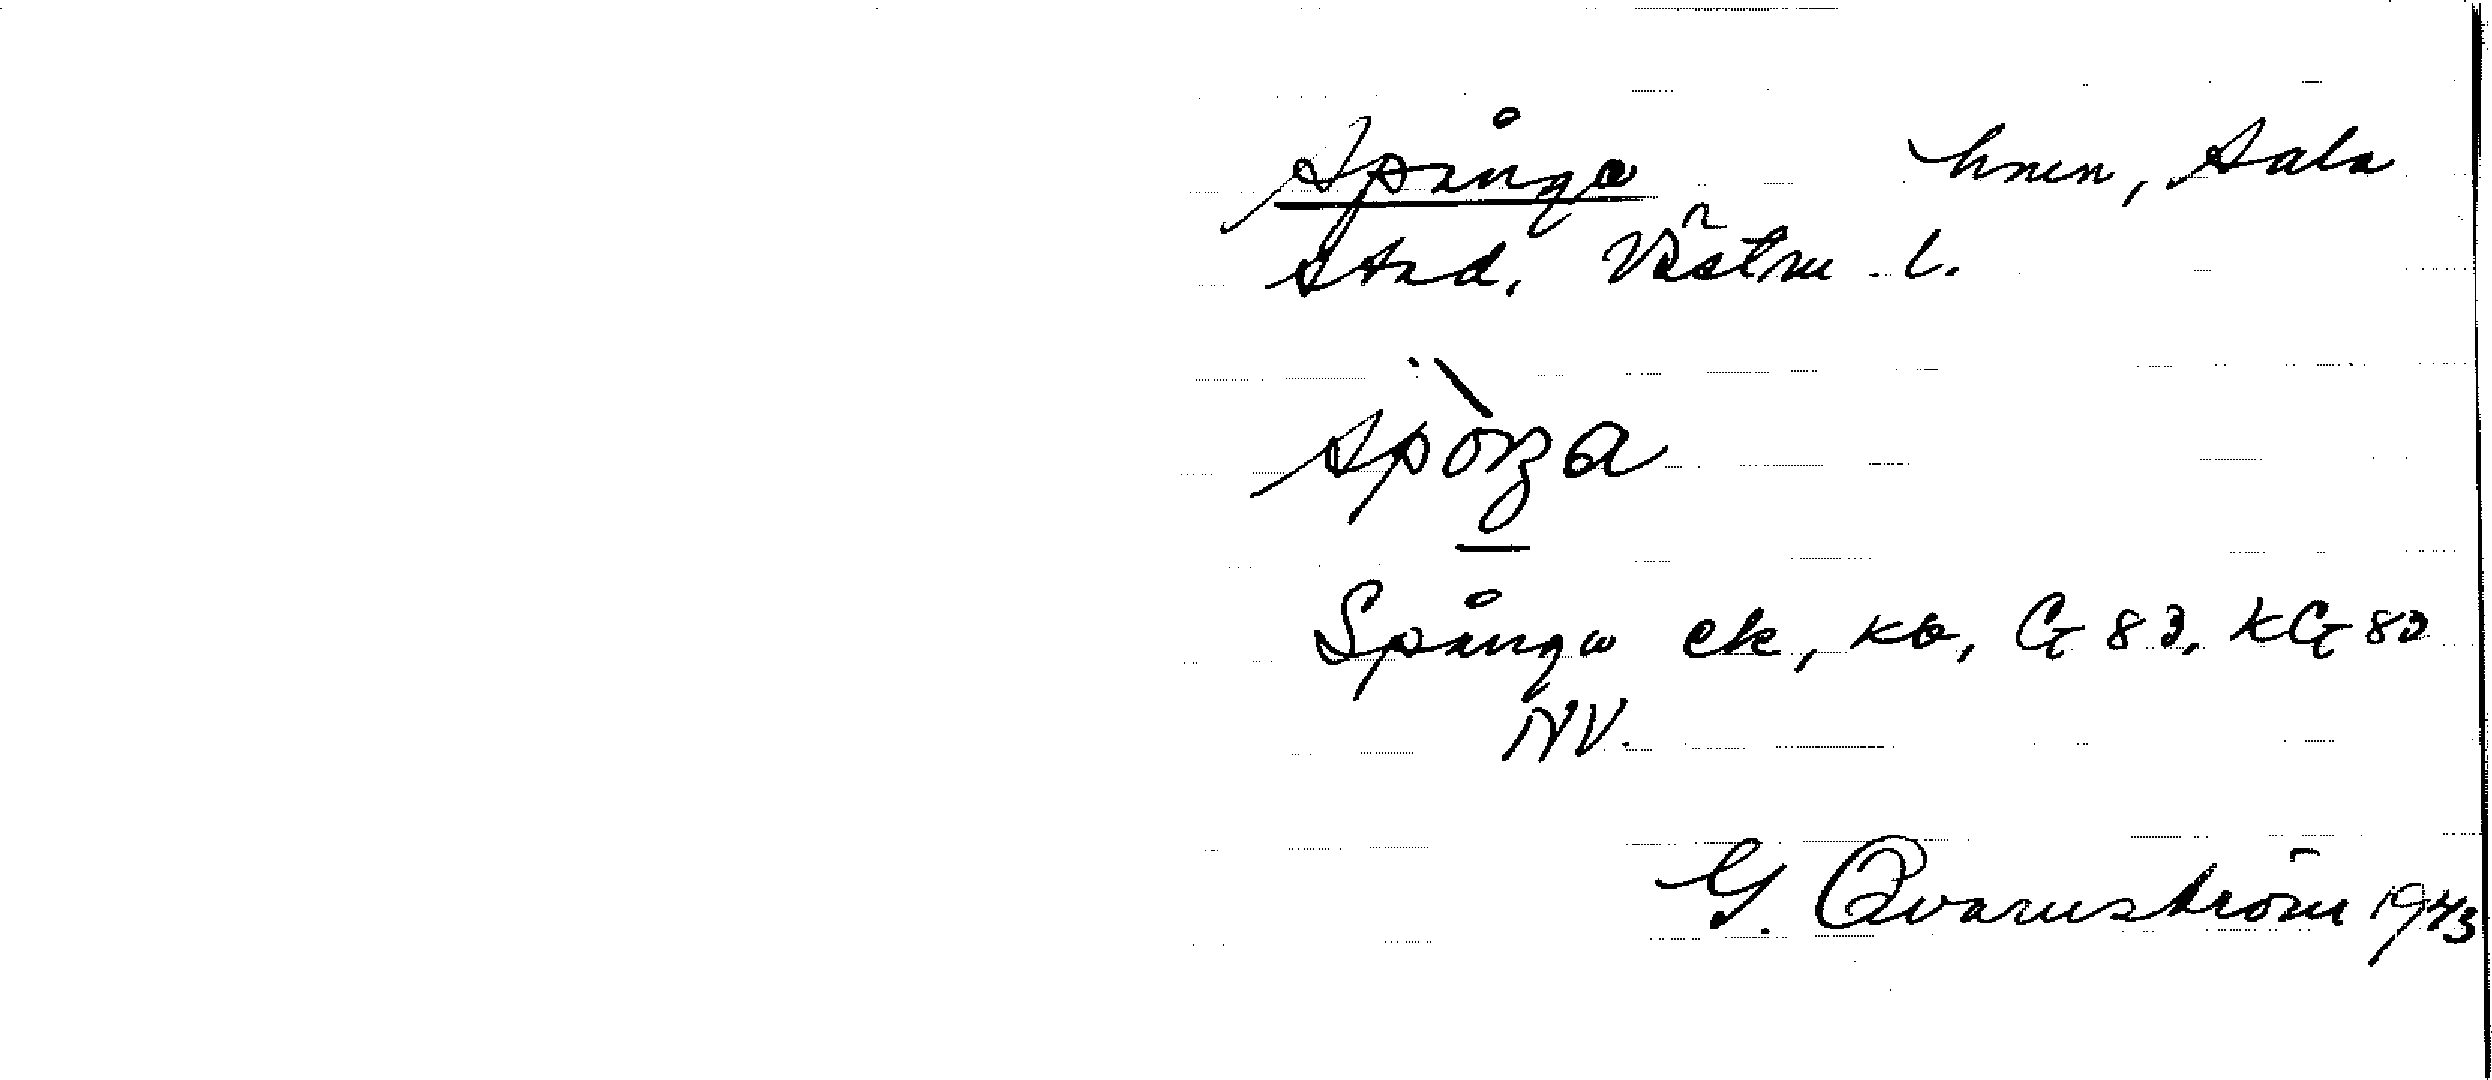 Spånga hmn, Sala
stad, Västm. l.
spòŋa
Spånga ek, kb, G 83, KG 83
NV.
G. Qvarnström 1943